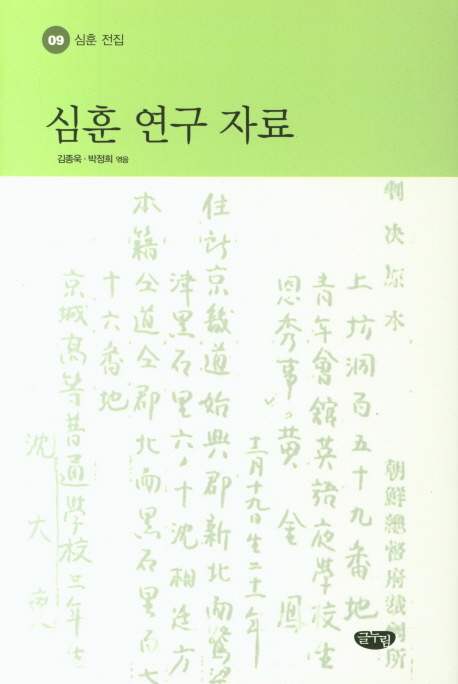 09 심훈 전집
심훈 연구 자료
김종욱·박정희 엮음
判决原本
朝鮮總督府裁判所
上坊洞百五十九番地
青年會館英語夜學校生
恩秀事 黄金鳳
十二月十九日生二十一年
住所京畿道始興郡新北面鷺梁
津黑石里六八十沈相廷方
本籍仝道仝郡北面黑石里百七
十六番地
京城高等普通學校三年生
沈大
글누림